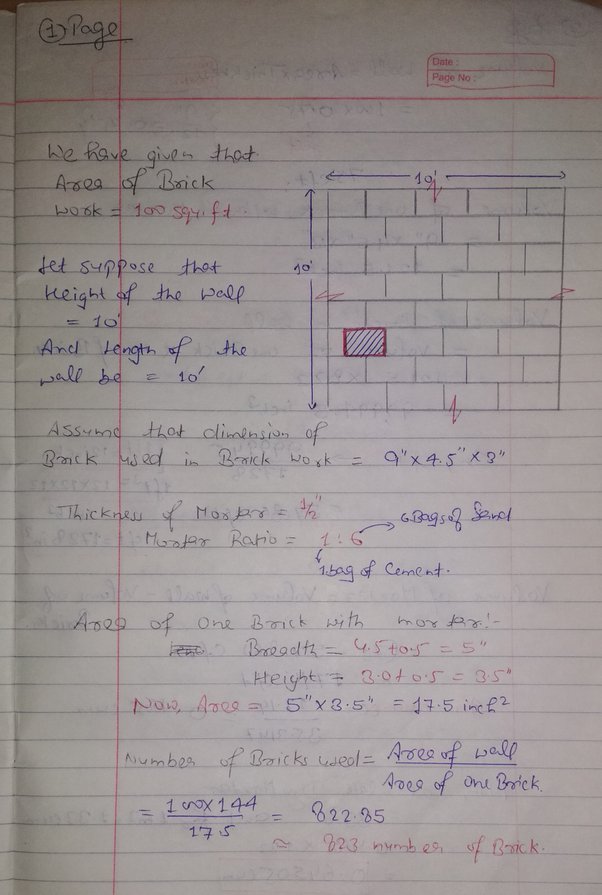 ① Page
Date :
Page No :
We have given that
Area of Brick
work = 100 squ. ft.
10'
10'
Let suppose that
Height of the wall
= 10'
And Length of the
wall be = 10'
Assume that dimension of
Brick used in Brick work = 9" x 4.5" x 3"
Thickness of Mortar = 1/2"
6.Bags of Sand
Mortar Ratio = 1 : 6
1.bag of Cement.
Area of one Brick with mortar:-
Breadth = 4.5+0.5 = 5"
Height = 3.0+0.5 = 3.5"
Now, Area = 5" x 3.5" = 17.5 inch²
Number of Bricks used = Area of wall
Area of one Brick.
= 100x144 = 822.85
17.5
≈ 823 number of Brick.